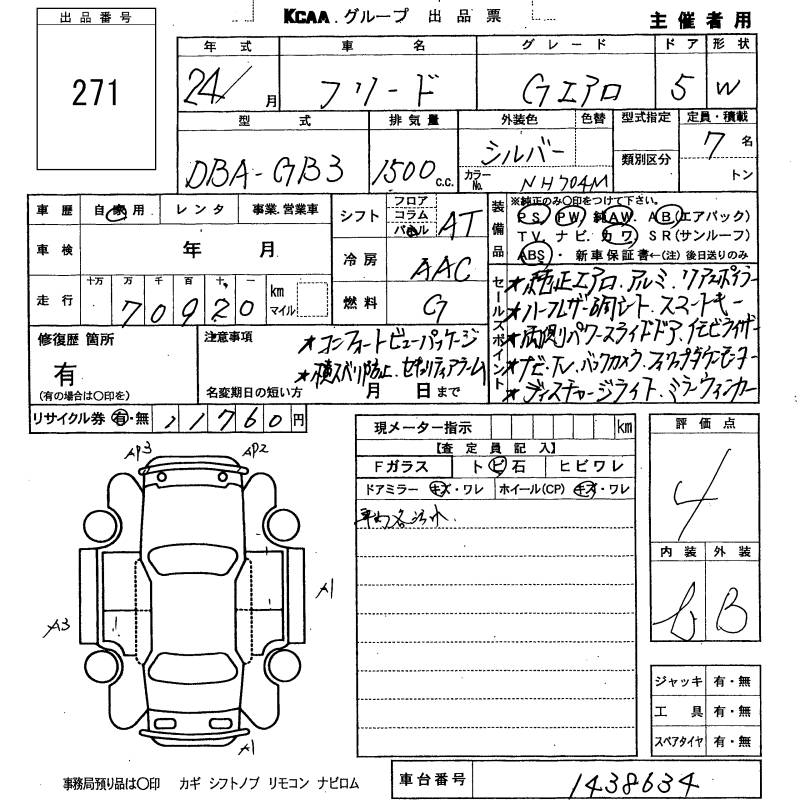 出品番号
271
KCAA.グループ 出品票
主催者用
年式 車名 グレード ドア 形状
24/ 月 フリード Gエアロ 5 W
型式 排気量 外装色 色替 型式指定 定員・積載
DBA-GB3 1500 c.c. シルバー 7 名
カラーNo. NH704M 類別区分 トン
車歴 自家用 レンタ 事業.営業車
シフト フロア コラム パネル AT
車検 年 月
冷房 AAC
走行 十万 万 千 百 十 一 km マイル
70920
燃料 G
装備品
※純正のみ〇印をつけて下さい。
PS PW 純AW. AB(エアバック)
TV. ナビ. カワ SR(サンルーフ)
ABS・新車保証書←(注)後日送りのみ
セールスポイント
★純正エアロ.アルミ.リアスポイラー
★ハーフレザー調シート.スマートキー
★両側パワースライドドア.イモビライザー
★ナビ.TV.バックカメラ.フリップダウンモニター
★ディスチャージライト.ミラーウィンカー
修復歴 箇所
有
(有の場合は〇印を)
注意事項
★コンフォートビューパッケージ
★横スベリ防止.セキュリティアラーム
名変期日の短い方 月 日まで
リサイクル券 有・無 11760円
現メーター指示 km
【査定員記入】
Fガラス トビ石 ヒビワレ
ドアミラー キズ・ワレ ホイール(CP) キズ・ワレ
評価点
4
内装 外装
B
AP3 AP2
A1
A3
A1
ジャッキ 有・無
工具 有・無
スペアタイヤ 有・無
事務局預り品は〇印 カギ シフトノブ リモコン ナビロム
車台番号 1438634